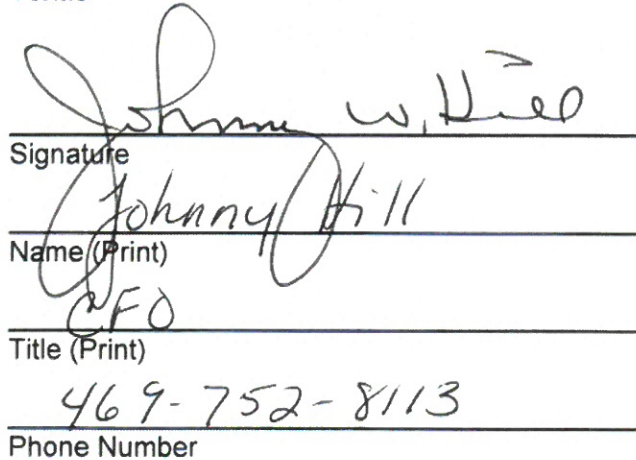 Johnny W. Hill
Signature
Johnny Hill
Name (Print)
CFO
Title (Print)
469-752-8113
Phone Number